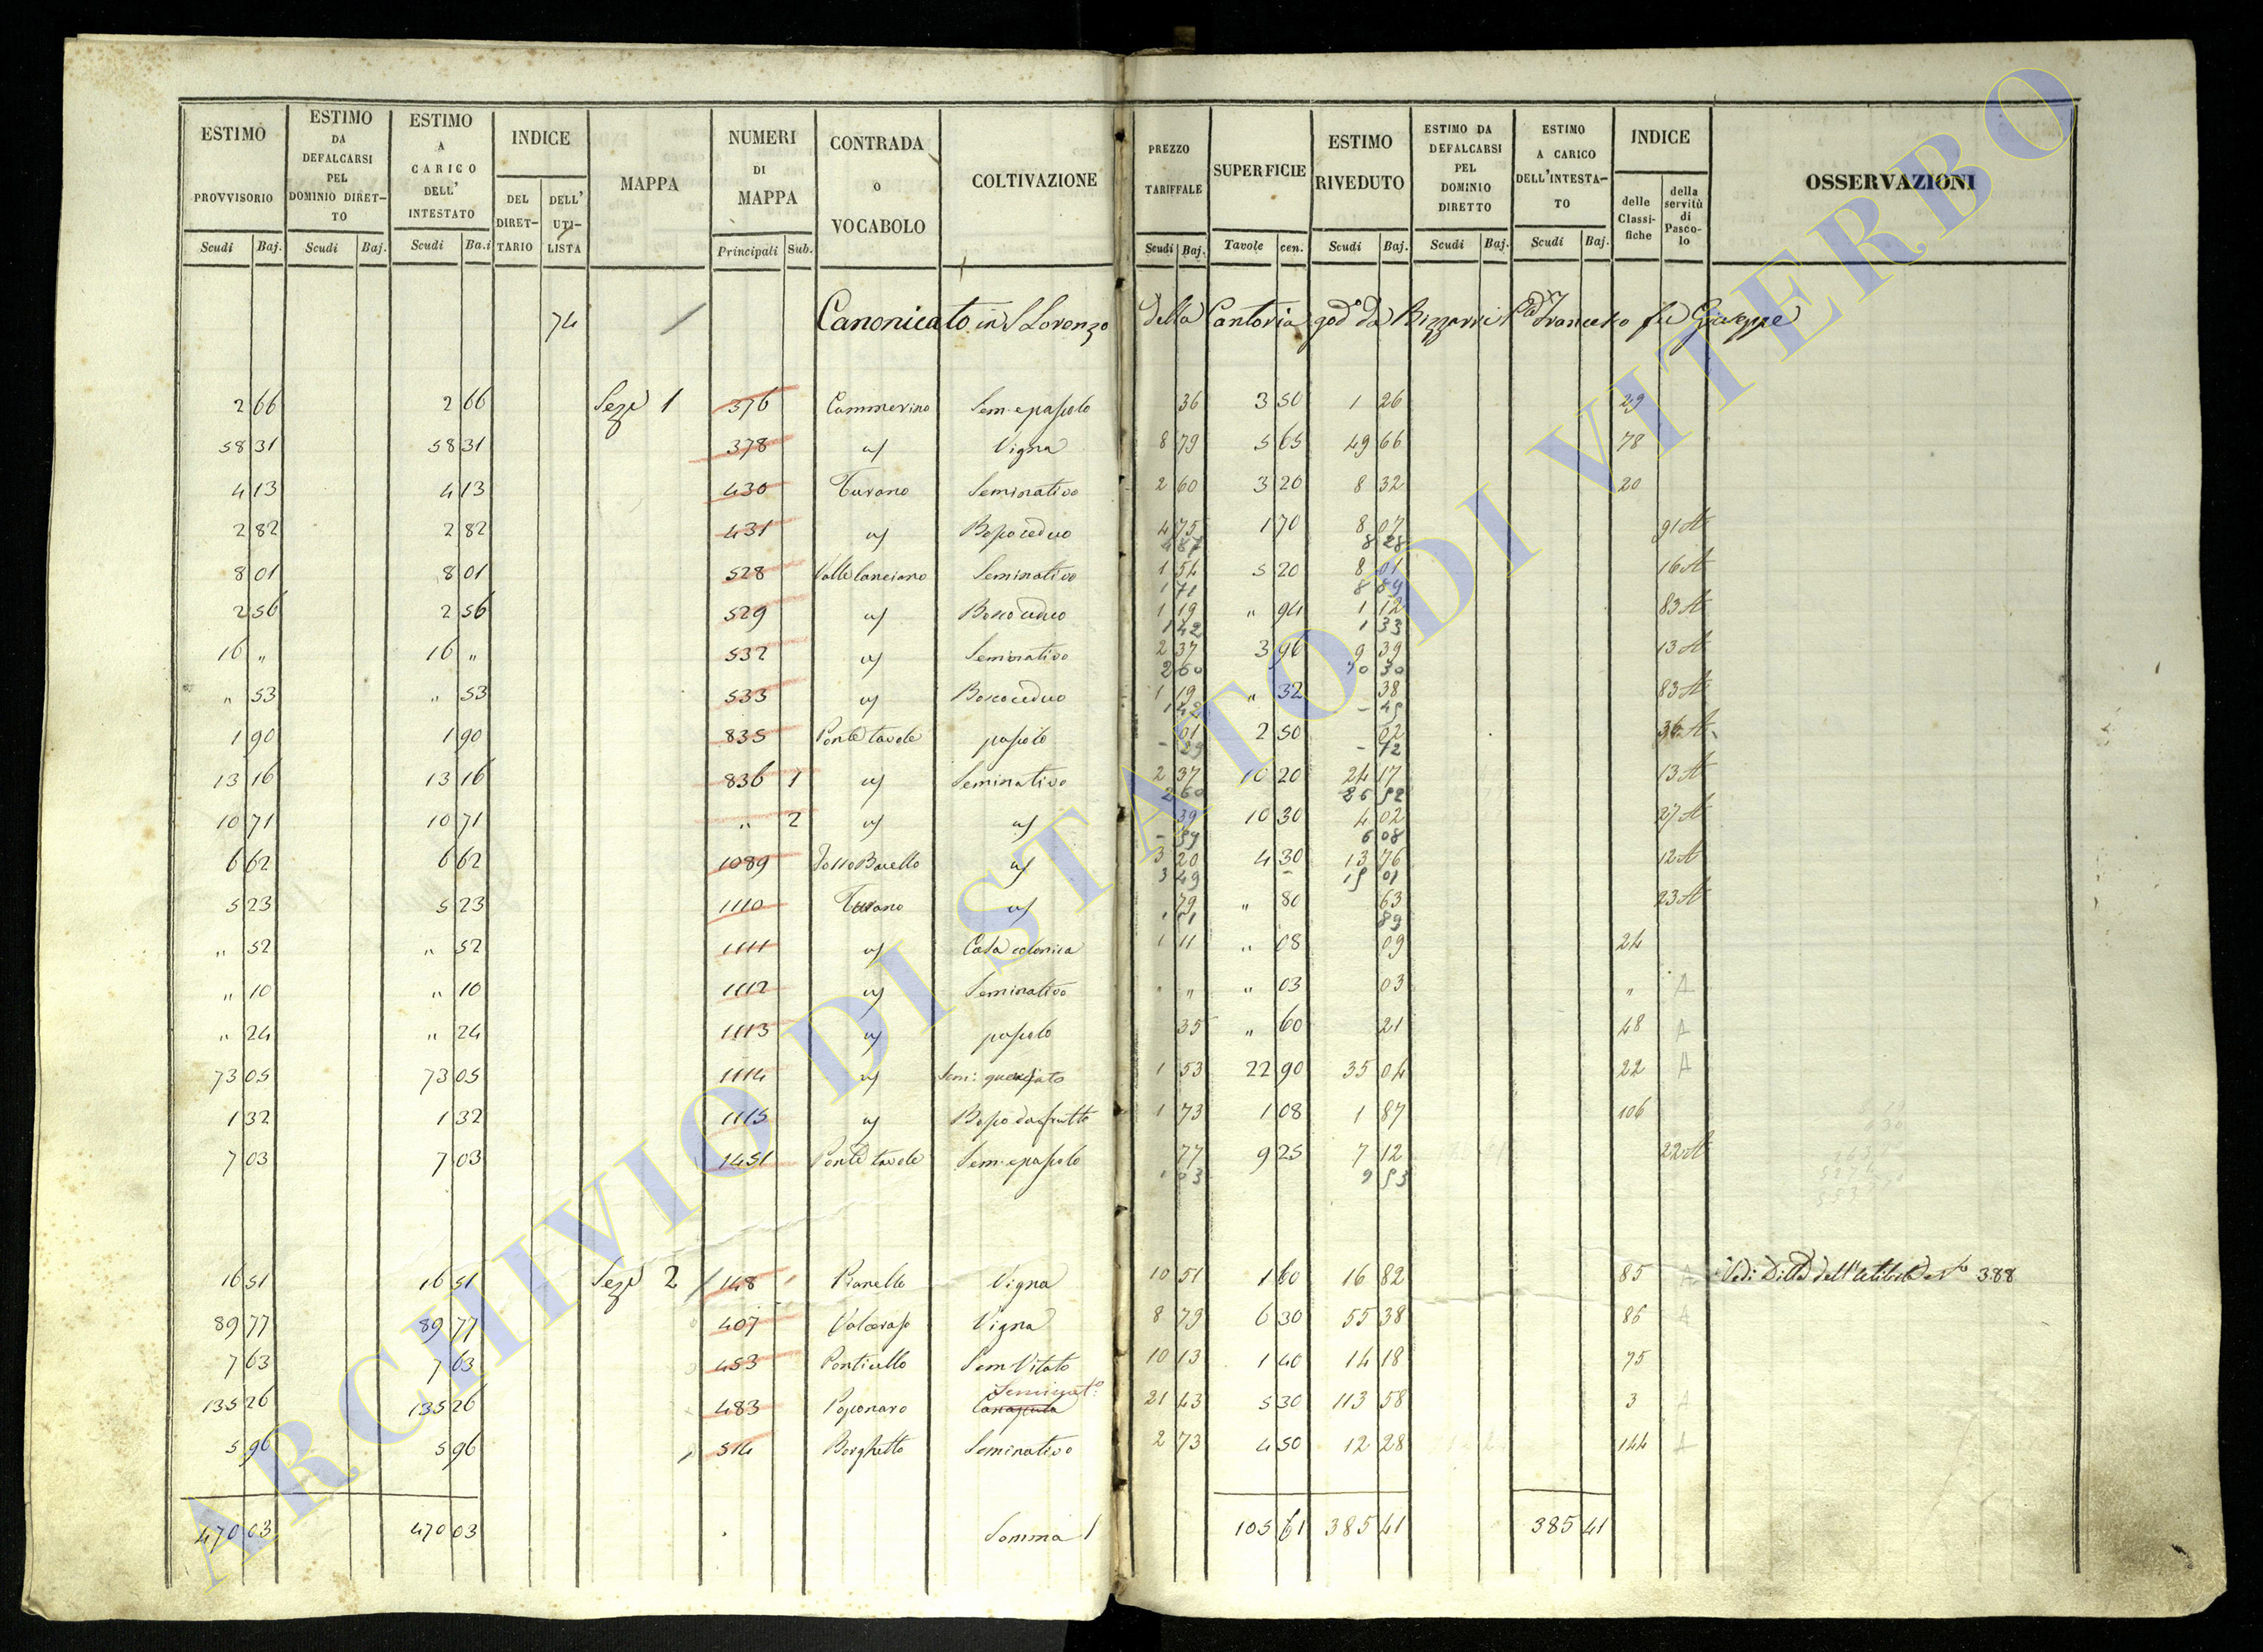 ESTIMO PROVVISORIO Scudi Baj.
ESTIMO DA DEFALCARSI PEL DOMINIO DIRET-TO Scudi Baj.
ESTIMO A CARICO DELL' INTESTATO Scudi Ba.i
INDICE DEL DIRET-TARIO DELL' UTI-LISTA
MAPPA
NUMERI DI MAPPA Principali Sub.
CONTRADA o VOCABOLO
COLTIVAZIONE
PREZZO TARIFFALE Scudi Baj.
SUPERFICIE Tavole cen.
ESTIMO RIVEDUTO Scudi Baj.
ESTIMO DA DEFALCARSI PEL DOMINIO DIRETTO Scudi Baj.
ESTIMO A CARICO DELL'INTESTA-TO Scudi Baj.
INDICE delle Classi-fiche della servitù di Pasco-lo
OSSERVAZIONI
74 Canonicato in S Lorenzo della Cantoria god.o da Bizzarri Francesco fu Giuseppe
2 66 2 66 Sez.e 1 376 Cammerino Sem. e pascolo 36 3 50 1 26 29
58 31 58 31 378 Vigna 8 79 5 65 49 66 78
4 13 4 13 430 Turano Seminativo 2 60 3 20 8 32 20
2 82 2 82 431 Bosco ceduo 4 75 1 70 8 07 91 A
4 87 8 28
8 01 8 01 528 Valle lanciano Seminativo 1 54 5 20 8 01 16 A
1 71 8 89
2 56 2 56 529 Bosco ceduo 1 19 " 94 1 12 83 A
1 42 1 33
16 " 16 " 532 Seminativo 2 37 3 96 9 39 13 A
2 60 10 30
" 53 " 53 533 Bosco ceduo 1 19 " 32 38 83 A
1 42 - 45
1 90 1 90 835 Ponte tavole pascolo 01 2 50 02 36 A
- 29 - 72
13 16 13 16 836 1 Seminativo 2 37 10 20 24 17 13 A
2 60 26 52
10 71 10 71 " 2 39 10 30 4 02 27 A
- 59 6 08
6 62 6 62 1089 3 20 4 30 13 76 12 A
3 49 15 01
5 23 5 23 1110 Turano 79 " 80 63 23 A
89
" 52 " 52 1111 Casa colonica 1 11 " 08 09 24
" 10 " 10 1112 Seminativo " " " 03 03 " A
" 24 " 24 1113 pascolo 35 " 60 21 48 A
73 05 73 05 1114 Sem: querciato 1 53 22 90 35 04 22 A
1 32 1 32 1115 Bosco da frutto 1 73 1 08 1 87 106
7 03 7 03 1451 Ponte tavole Sem. e pascolo 77 9 25 7 12 22 A
1 03 9 53
16 51 16 51 Sez.e 2 148 Pianello Vigna 10 51 1 60 16 82 85 A Vedi Ditta 388
89 77 89 77 407 Valcerasa Vigna 8 79 6 30 55 38 86 A
7 63 7 63 453 Ponticello Sem Vitato 10 13 1 40 14 18 75
Seminat.o
135 26 135 26 483 Poponaro Canapula 21 43 5 30 113 58 3 A
5 96 5 96 514 Borghetto Seminativo 2 73 4 50 12 28 144 A
470 03 470 03 Somma 105 61 385 41 385 41
ARCHIVIO DI STATO DI VITERBO